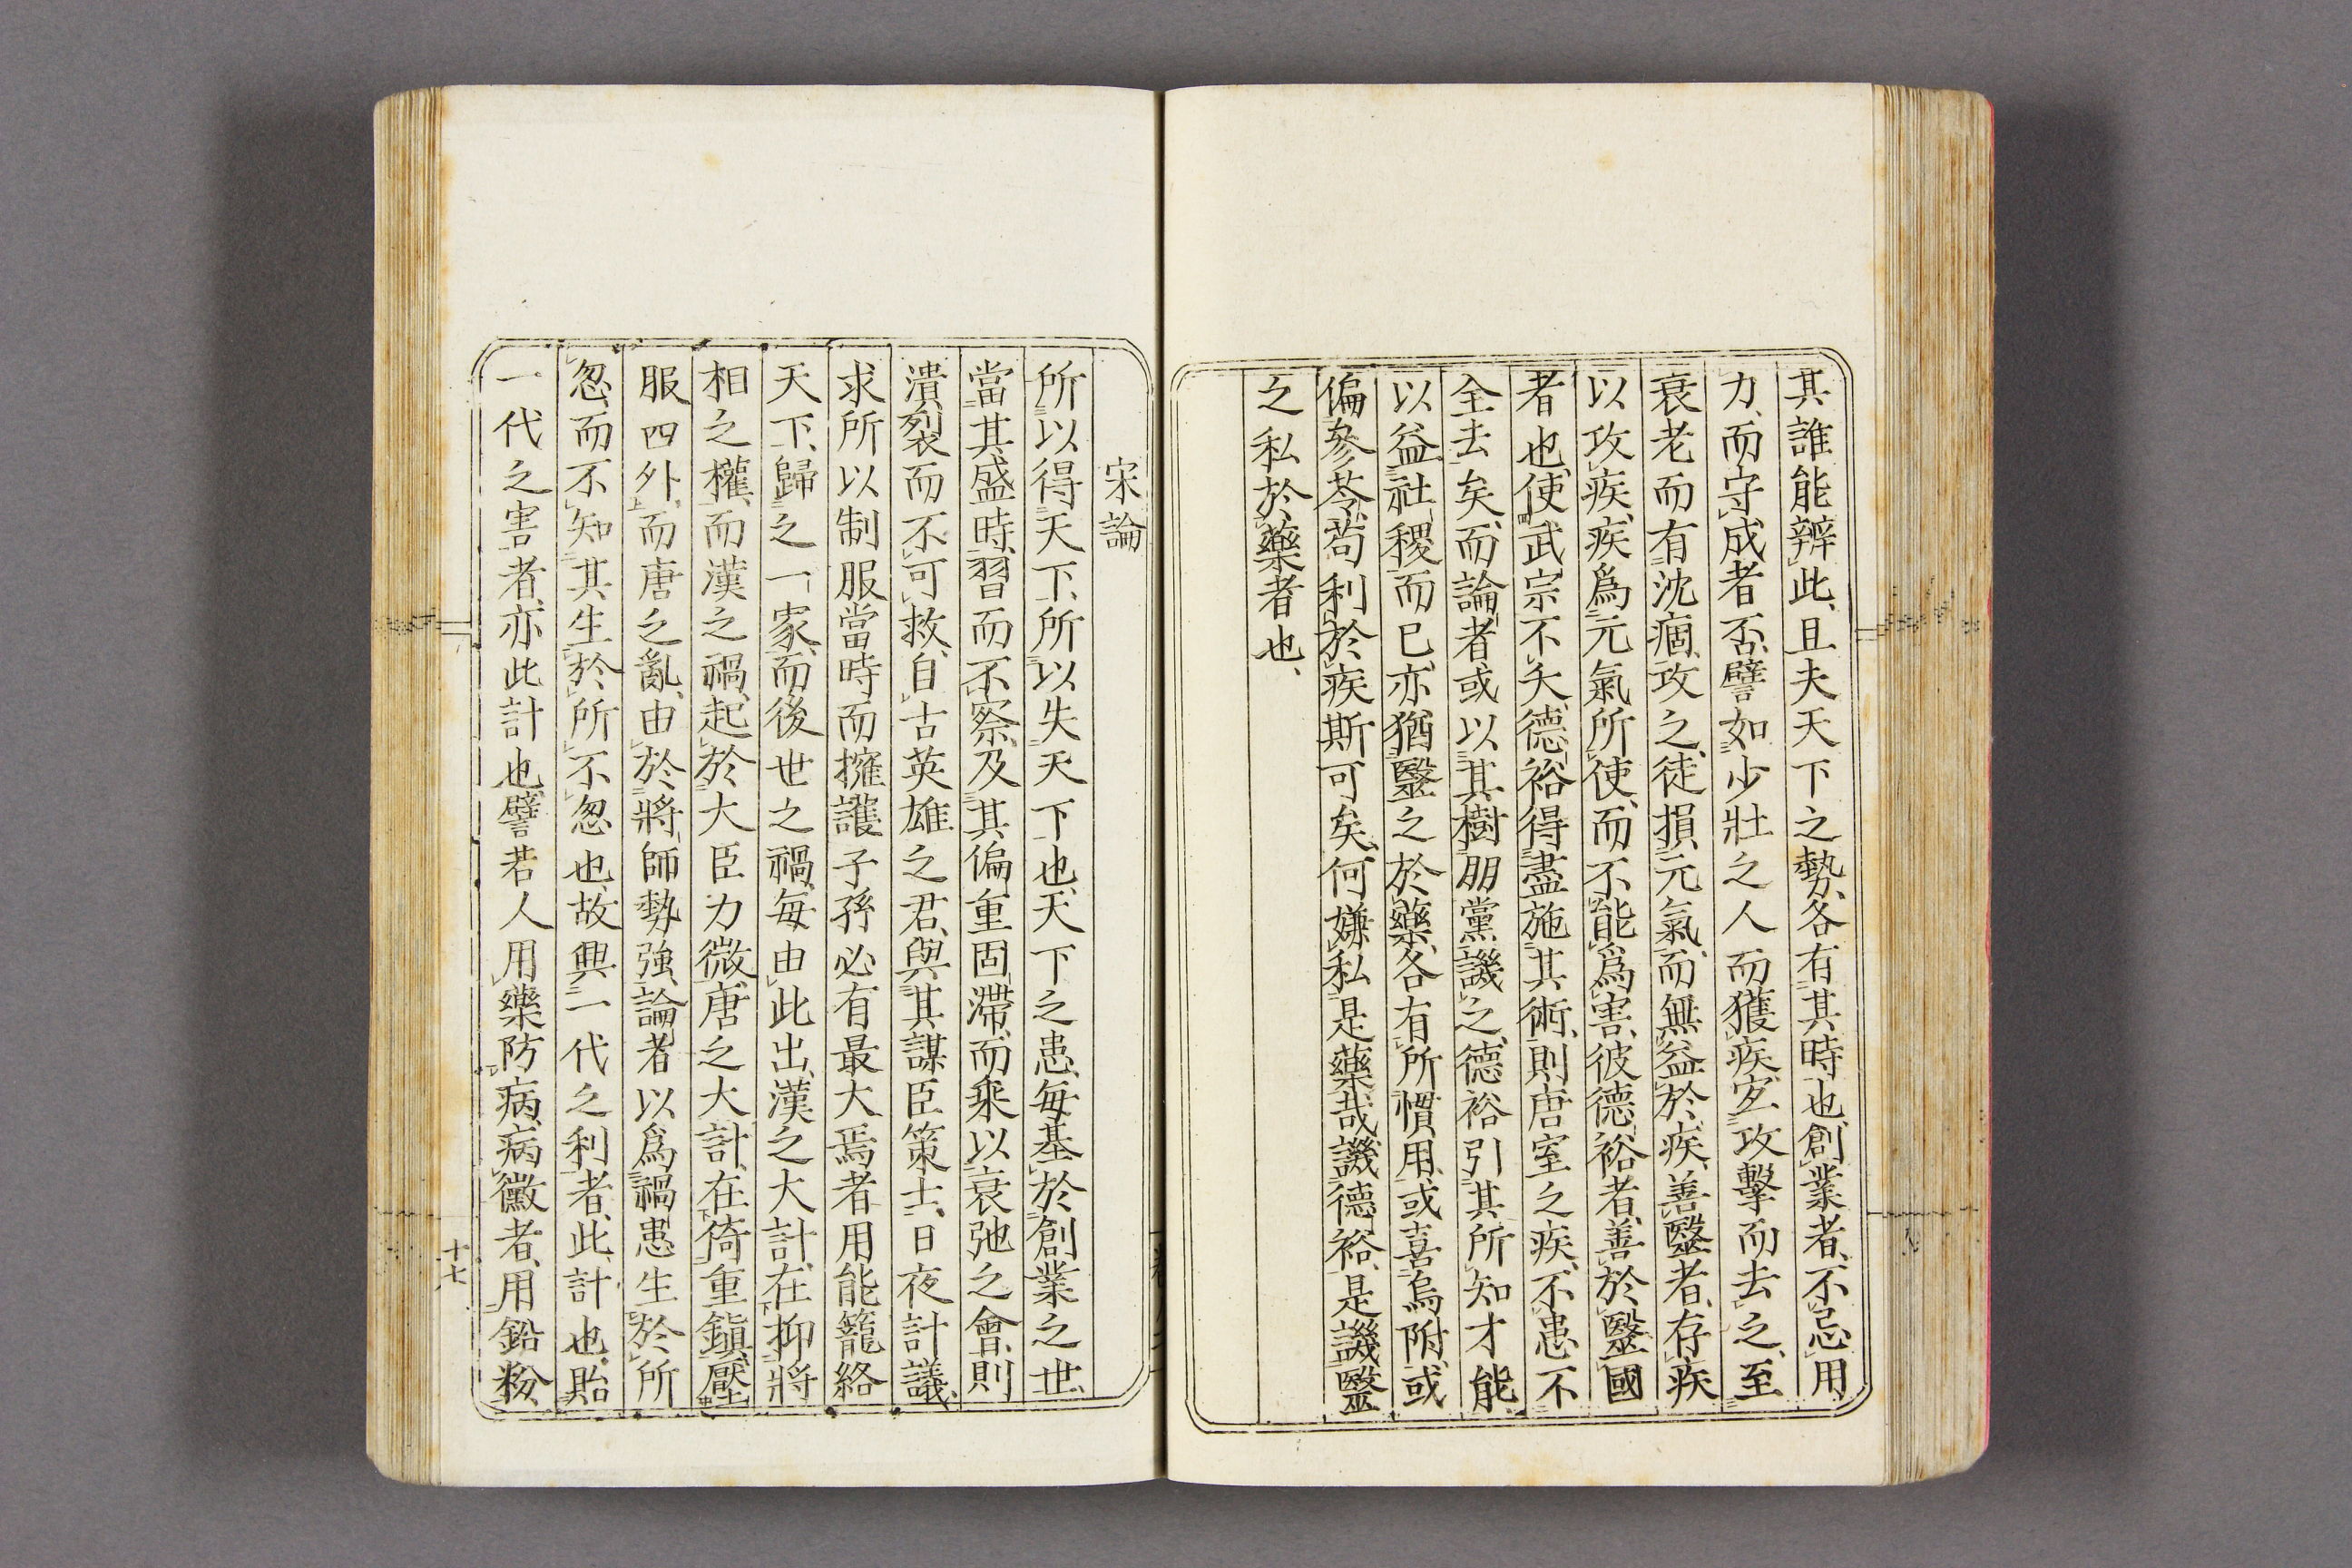 其誰能辨此、且夫天下之勢、各有其時也、創業者、不忌用
力、而守成者否、譬如少壯之人而獲疾、宐攻擊而去之、至
衰老而有沈痼、攻之、徒損元氣、而無益於疾、善醫者、存疾
以攻疾、疾爲元氣所使、而不能爲害、彼德裕者、善於醫國
者也、使武宗不夭、德裕得盡施其術、則唐室之疾、不患不
全去矣、而論者或以其樹朋黨譏之、德裕引其所知才能
以益社稷而已、亦猶醫之於藥、各有所慣用、或喜烏附、或
偏參苓、苟利於疾斯可矣、何嫌私是藥哉、譏德裕、是譏醫
之私於藥者也、
宋論
所以得天下、所以失天下也、天下之患、每基於創業之世、
當其盛時、習而不察、及其偏重固滯、而乘以衰弛之會、則
潰裂而不可救、自古英雄之君、與其謀臣策士、日夜計議、
求所以制服當時、而擁護子孫必有最大焉者用能籠絡
天下、歸之一家、而後世之禍、每由此出、漢之大計、在抑將
相之權、而漢之禍、起於大臣力微、唐之大計、在倚重鎭、壓
服四外、而唐之亂、由於將師勢強、論者以爲禍患生於所
忽、而不知其生於所不忽也、故興一代之利者、此計也、貽
一代之害者、亦此計也、譬若人用藥防病、病黴者、用鉛粉
十七